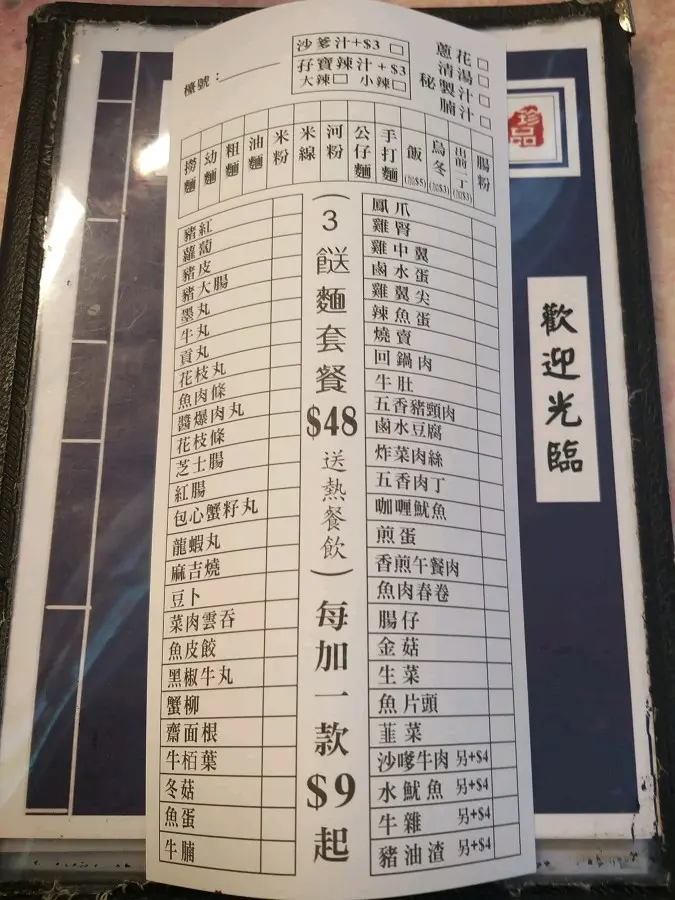 檯號：
沙爹汁+$3
孖寶辣汁+$3
大辣 小辣
蔥花
清湯
秘製汁
腩汁
撈麵
幼麵
粗麵
油麵
米粉
米線
河粉
公仔麵
手打麵
飯(加$5)
烏冬(加$3)
出前一丁(加$3)
腸粉
豬紅
蘿蔔
豬皮
豬大腸
墨丸
牛丸
貢丸
花枝丸
魚肉條
醬爆肉丸
花枝條
芝士腸
紅腸
包心蟹籽丸
龍蝦丸
麻吉燒
豆卜
菜肉雲吞
魚皮餃
黑椒牛丸
蟹柳
齋面根
牛栢葉
冬菇
魚蛋
牛腩
(3餸麵套餐$48送熱餐飲)每加一款$9起
鳳爪
雞腎
雞中翼
鹵水蛋
雞翼尖
辣魚蛋
燒賣
回鍋肉
牛肚
五香豬頸肉
鹵水豆腐
炸菜肉絲
五香肉丁
咖喱魷魚
煎蛋
香煎午餐肉
魚肉春卷
腸仔
金菇
生菜
魚片頭
韮菜
沙嗲牛肉 另+$4
水魷魚 另+$4
牛雜 另+$4
豬油渣 另+$4
珍品
歡迎光臨